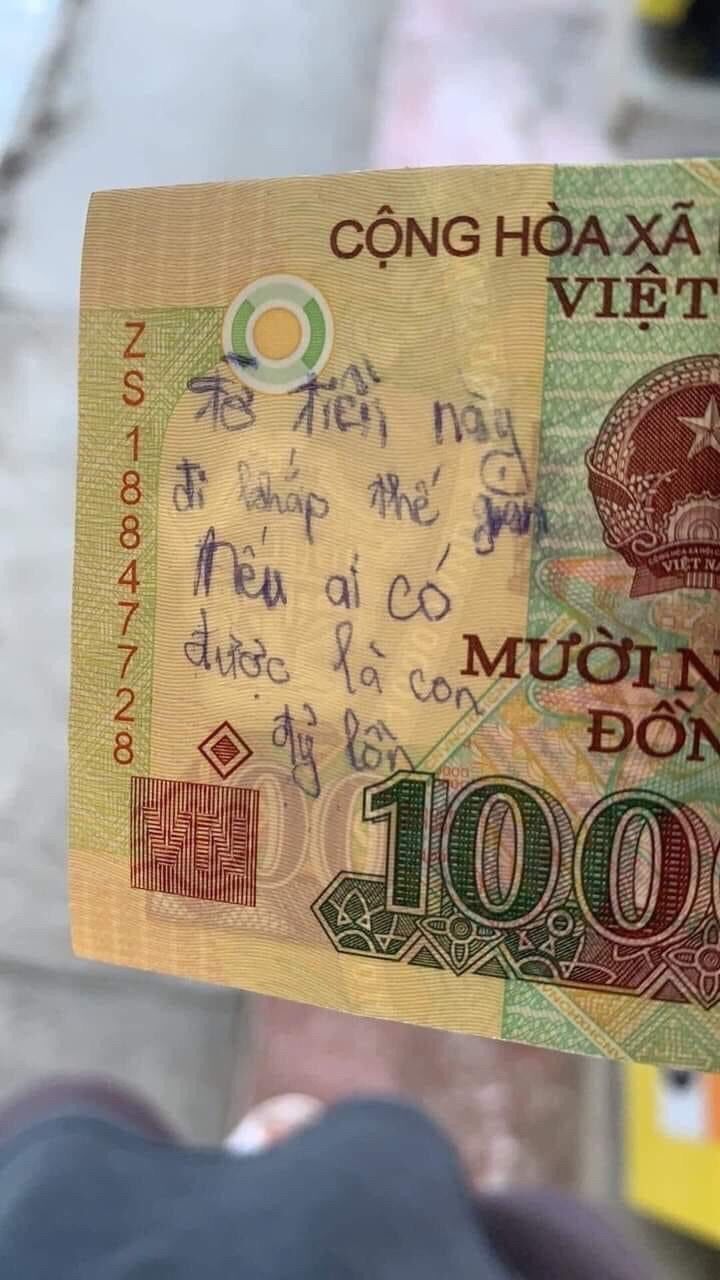 CỘNG HÒA XÃ
VIỆT
ZS18847728
Tờ tiền này
đi khắp thế gian
Nếu ai có
được là con
đỷ lồn
VIỆT NA
MƯỜI N
ĐỒN
1000